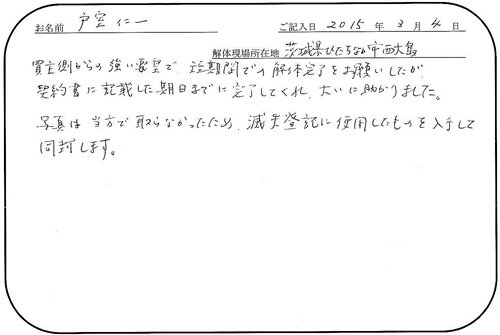 お名前 戸室 仁一 ご記入日 2015 年 3 月 4 日
解体現場所在地 茨城県ひたちなか市西大島
買主側からの強い要望で、短期間での解体完了をお願いしたが、
契約書に記載した期日までに完了してくれ、大いに助かりました。
写真は当方で取らなかったため、滅失登記に使用したものを入手して
同封します。